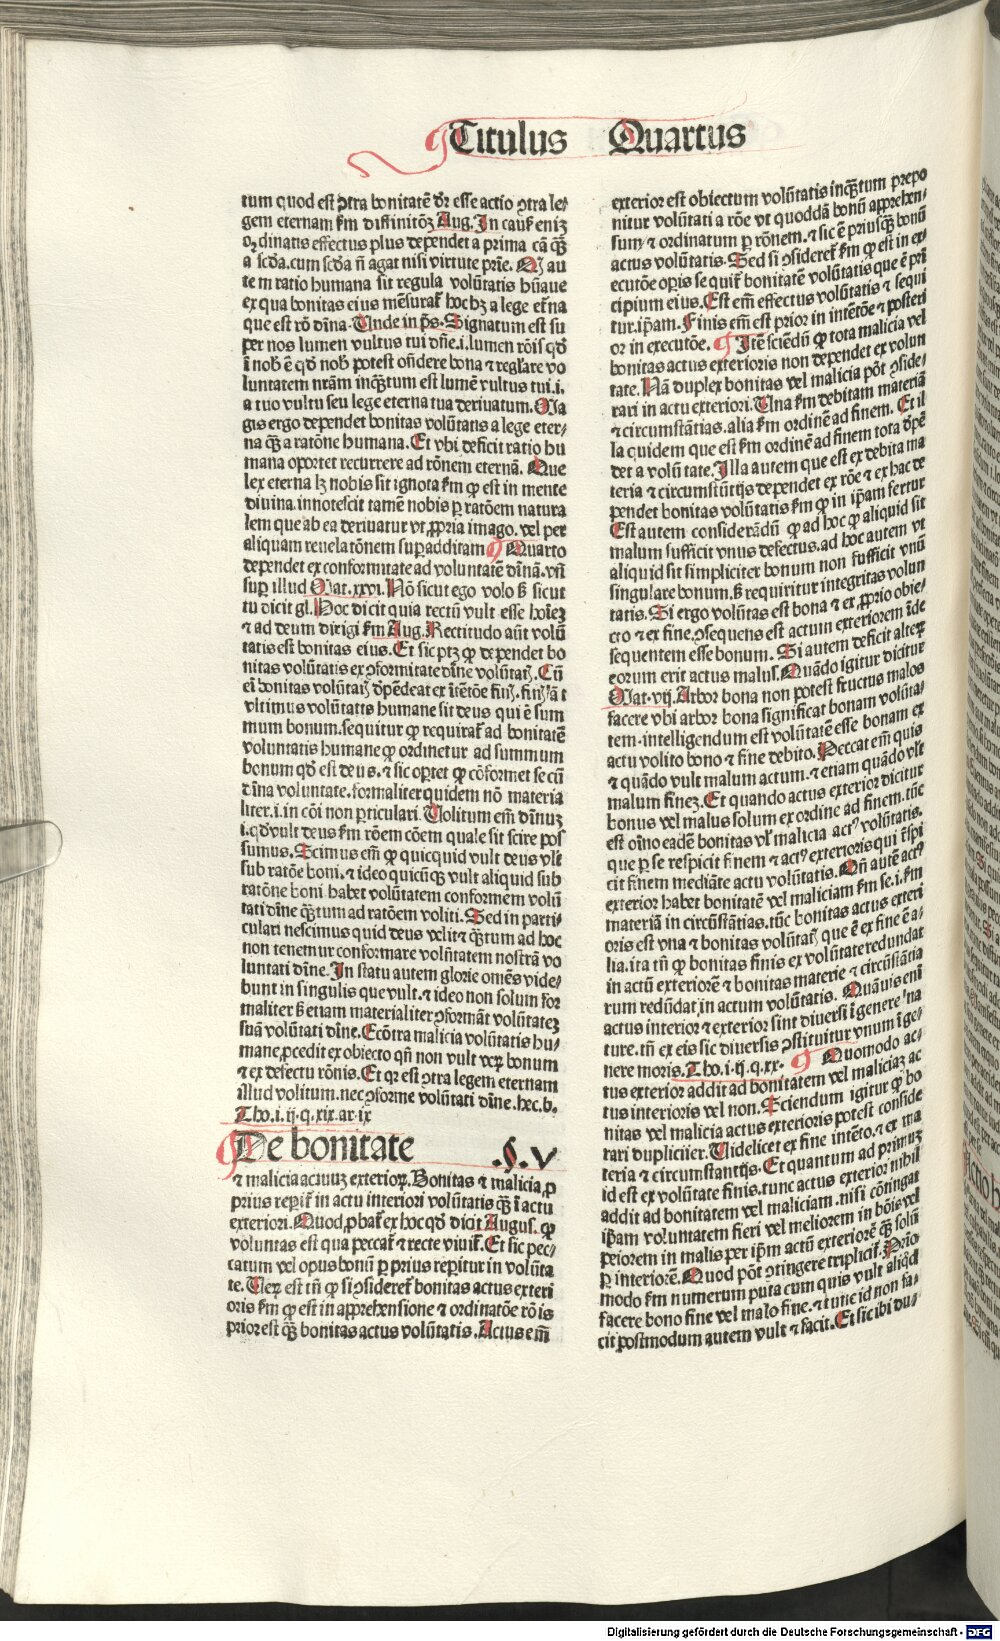 Titulus Quartus
tum quod est ꝯtra bonitatē dr̄ esse actio ꝯtra le⸗
gem eternam ẜm diffinitōꝫ Aug. In cauẜ eniꝫ
ordinatis effectus plus dependet a prima cā qꝫ̄
a sc̄da. cum sc̄da nō agat nisi virtute prīe. Qꝛ au
tem ratio humana sit regula volūtatis hūane
ex qua bonitas eius mēsurat᷑ hoc hꝫ a lege et̄na
que est rō dīna. Unde in ps̄. Signatum est su
per nos lumen vultus tui dn̄e. i. lumen rōis qd̄
ī nob̄ ē qd̄ nob̄ potest oñdere bona ⁊ regłare vo
luntatem nrām inqꝫ̄tum est lumē vultus tui. i.
a tuo vultu seu lege eterna tua deriuatum. Ma
gis ergo dependet bonitas volūtatis a lege eter⸗
na qꝫ̄ a ratōne humana. Et vbi deficit ratio hu
mana oportet recurrere ad rōnem eternā. Que
lex eterna lꝫ nobis sit ignota ẜm ꝙ est in mente
diuina. innotescit tamē nobis ꝑ ratōem natura
lem que ab ea deriuatur vt ꝓpria imago. vel per
aliquam reuelatōnem suꝑadditam ¶ Quarto
dependet ex conformitate ad voluntatē dīnā. vñ
suꝑ illud Mat. xxvi. Nō sicut ego volo ẜ sicut
tu dicit gl. Hoc dicit quia rectū vult esse hoīeꝫ
⁊ ad deum dirigi ẜm Aug. Rectitudo aūt volū
tatis est bonitas eius. Et sic ptꝫ ꝙ dependet bo
nitas volūtatis ex ꝯformitate dīne volūtatꝭ. Cū
eī bonitas volūtatꝭ dpēdeat ex ītētōe finꝭ. finꝭ āt
vltimus volūtatis humane sit deus qui ē sum
mum bonum. sequitur ꝙ requirat᷑ ad bonitatē
voluntatis humane ꝙ ordinetur ad summum
bonum qd̄ est deus. ⁊ sic oꝑtet ꝙ cōformet se cū
dīna voluntate. formaliter quidem nō materia
liter. i. in cōi non ꝑticulari. Volitum em̄ dīnuꝫ
.i. qd̄ vult deus ẜm rōem cōem quale sit scire pos
sumus. Scimus em̄ ꝙ quicquid vult deus vłt
sub ratōe boni. ⁊ ideo quicūqꝫ vult aliquid sub
ratōne boni habet volūtatem conformem volū
tati dīne qꝫ̄tum ad ratōem voliti. Sed in parti⸗
culari nescimus quid deus velit ⁊ qꝫ̄tum ad hoc
non tenemur conformare volūtatem nostrā vo
luntati dīne. In statu autem glorie omēs vide⸗
bunt in singulis que vult. ⁊ ideo non solum for
maliter ẜ etiam materialiter ꝯformāt volūtateꝫ
suā volūtati dīne. Ecōtra malicia volūtatis hu⸗
mane ꝓcedit ex obiecto qn̄ non vult veꝝ bonum
⁊ ex defectu rōnis. Et qꝛ est ꝯtra legem eternam
illud volitum. nec ꝯforme volūtati dīne. hec. b.
Tho. i. ij. q. xix. ar. ix
De bonitate .§. V
⁊ malicia actuuꝫ exterioꝝ. Bonitas ⁊ malicia ꝓ
prius reꝑit᷑ in actu interiori volūtatis qꝫ̄ ī actu
exteriori. Quod ꝓbat᷑ ex hoc qd̄ dicit Augus. ꝙ
voluntas est qua peccat᷑ ⁊ recte viuit᷑. Et sic pec⸗
catum vel opus bonū ꝑ prius reꝑitur in volūta
te. Veꝝ est tñ ꝙ si ꝯsideret᷑ bonitas actus exteri
oris ẜm ꝙ est in apprehensione ⁊ ordinatōe rōis
prior est qꝫ̄ bonitas actus volūtatis. Actus em̄
exterior est obiectum volūtatis inqꝫ̄tum prepo
nitur volūtati a rōe vt quoddā bonū apprehen⸗
sum ⁊ ordinatum ꝑ rōnem. ⁊ sic ē priusqꝫ̄ bonū
actus volūtatis. Sed si ꝯsideret᷑ ẜm ꝙ est in ex⸗
ecutōe oꝑis sequit᷑ bonitatē volūtatis que ē prī
cipium eius. Est em̄ effectus volūtatis ⁊ sequi
tur. ip̄am. Finis em̄ est prior in intētōe ⁊ posteri
or in executōe. ¶ Itē sciēdū ꝙ tota malicia vel
bonitas actus exterioris non dependet ex volun
tate. Nā duplex bonitas vel malicia pōt ꝯside⸗
rari in actu exteriori. Una ẜm debitam materiā
⁊ circumstātias. alia ẜm ordinē ad finem. Et il
la quidem que est ẜm ordinē ad finem tota dpē
det a volūtate. Illa autem que est ex debita ma
teria ⁊ circumstātijs dependet ex rōe ⁊ ex hac de
pendet bonitas volūtatis ẜm ꝙ in ip̄am fertur
Est autem considerādū ꝙ ad hoc ꝙ aliquid sit
malum sufficit vnus defectus. ad hoc autem vt
aliquid sit simpliciter bonum non sufficit vnū
singulare bonum. ẜ requiritur integritas volun
tatis. Si ergo volūtas est bona ⁊ ex ꝓprio obie⸗
cto ⁊ ex fine. ꝯsequens est actum exteriorem īde
sequentem esse bonum. Si autem deficit alteꝝ
eorum erit actus malus. Quādo igitur dicitur
Mat. vij. Arbor bona non potest fructus malos
facere vbi arbor bona significat bonam volūta⸗
tem. intelligendum est volūtatē esse bonam ex
actu volito bono ⁊ fine debito. Peccat em̄ quis
⁊ quādo vult malum actum. ⁊ etiam quādo vłt
malum fineꝫ. Et quando actus exterior dicitur
bonus vel malus solum ex ordine ad finem. tūc
est oīno eadē bonitas vł malicia actꝰ volūtatis.
que per se respicit finem ⁊ actꝰ exterioris qui r̄spi
cit finem mediāte actu volūtatis. Qn̄ autē actꝰ
exterior habet bonitatē vel maliciam ẜm se. i. ẜm
materiā in circūstātias. tūc bonitas actus exteri
oris est vna ⁊ bonitas volūtatꝭ que ē ex fine ē a⸗
lia. ita tñ ꝙ bonitas finis ex volūtate redundat
in actū exteriorē ⁊ bonitas materie ⁊ circūstātia
rum redūdat in actum volūtatis. Quāuis eni
actus interior ⁊ exterior sint diuersi ī genere na
ture. tñ ex eis sic diuersis ꝯstituitur vnum ī ge⸗
nere moris. Tho. i. ij. q. xx. ¶ Quomodo ac⸗
tus exterior addit ad bonitatem vel maliciaꝫ ac
tus interioris vel non. Sciendum igitur ꝙ bo
nitas vel malicia actus exterioris potest conside
rari dupliciter. Videlicet ex fine intēto. ⁊ ex ma
teria ⁊ circumstantijs. Et quantum ad primuꝫ
id est ex volūtate finis. tunc actus exterior nihil
addit ad bonitatem vel maliciam. nisi cōtingat
ip̄am voluntatem fieri vel meliorem in bōis vel
peiorem in malis per ip̄m actū exteriorē qꝫ̄ solū
ꝑ interiorē. Quod pōt ꝯtingere triplicit᷑. Prīo
modo ẜm numerum puta cum quis vult aliqd̄
facere bono fine vel malo fine. ⁊ tunc id non fa⸗
cit postmodum autem vult ⁊ facit. Et sic ibi du⸗
Digitalisierung gefördert durch die Deutsche Forschungsgemeinschaft - DFG